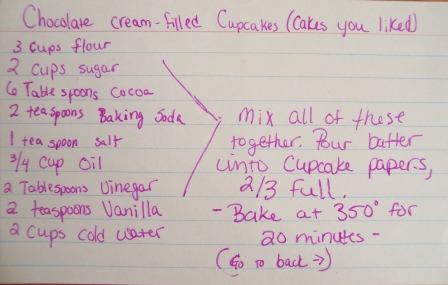 Chocolate Cream-filled Cupcakes (Cakes you liked)
3 Cups flour
2 cups sugar
6 Table spoons cocoa
2 teaspoons Baking Soda
1 tea spoon salt
3/4 Cup Oil
2 Tablespoons Vinegar
2 teaspoons Vanilla
2 Cups cold water
Mix all of these
together. Pour batter
into Cupcake papers,
2/3 full.
- Bake at 350° for
20 minutes -
(Go to back →)